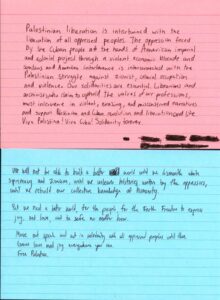 Palestinian liberation is intertwined with the
liberation of all oppressed peoples. The oppression faced
by the Cuban people at the hands of American imperial
and colonial project through a violent economic blockade and
and American interference is interconnected with the
Palestinian struggle against zionist, colonial occupation
and violence. Our solidarities are essential. Librarians and
archivists claim to uphold the values of our professions,
must intervene in violent, enabling, and whitewashed narratives
and support Palestinian and Cuban revolution and liberation.
Viva Palestina! Viva Cuba! Solidarity forever.
We will not be able to build a better world until we dismantle white
supremacy and Zionism, until we unlearn histories written by the oppressors,
until we rebuild our collective knowledge of humanity.
But we need a better world, for the people of the Earth. Freedom to express
joy, and love, and to safe no matter how.
Move out speak and act in solidarity with all oppressed peoples until then
Love and joy everywhere you can.
Free Palestine.